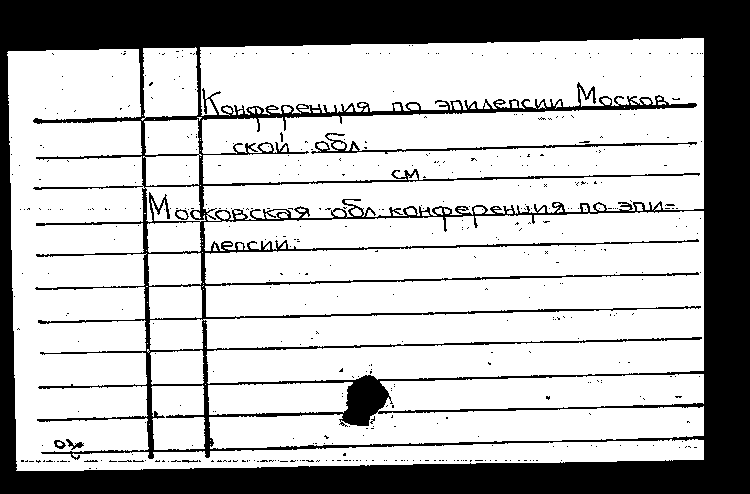 Конференция по эпилепсии Москов-
ской обл.
см.
Московская обл. конференция по эпи-
лепсии.